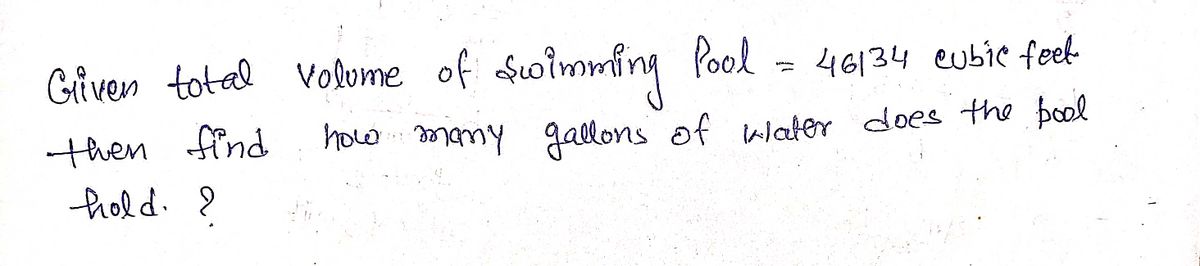 Given total volume of swimming Pool = 46134 cubic feet
then find how many gallons of water does the pool
hold. ?